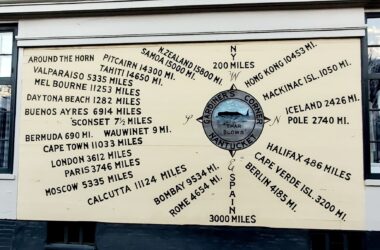 N. ZEALAND 15800 MI.
SAMOA 15000 MI.
AROUND THE HORN
PITCAIRN 14300 MI.
TAHITI 14650 MI.
VALPARAISO 5335 MILES
MEL BOURNE 11253 MILES
DAYTONA BEACH 1282 MILES
BUENOS AYRES 6914 MILES
'SCONSET 7½ MILES
BERMUDA 690 MI.
WAUWINET 9 MI.
CAPE TOWN 11033 MILES
LONDON 3612 MILES
PARIS 3746 MILES
MOSCOW 5335 MILES
CALCUTTA 11124 MILES
BOMBAY 9534 MI.
ROME 4654 MI.
NY
200 MILES
W
GARDINER'S CORNER
"THAR
BLOWS"
NANTUCKET
SPAIN
3000 MILES
HONG KONG 10453 MI.
MACKINAC ISL. 1050 MI.
ICELAND 2426 MI.
POLE 2740 MI.
HALIFAX 486 MILES
CAPE VERDE ISL. 3200 MI.
BERLIN 4185 MI.